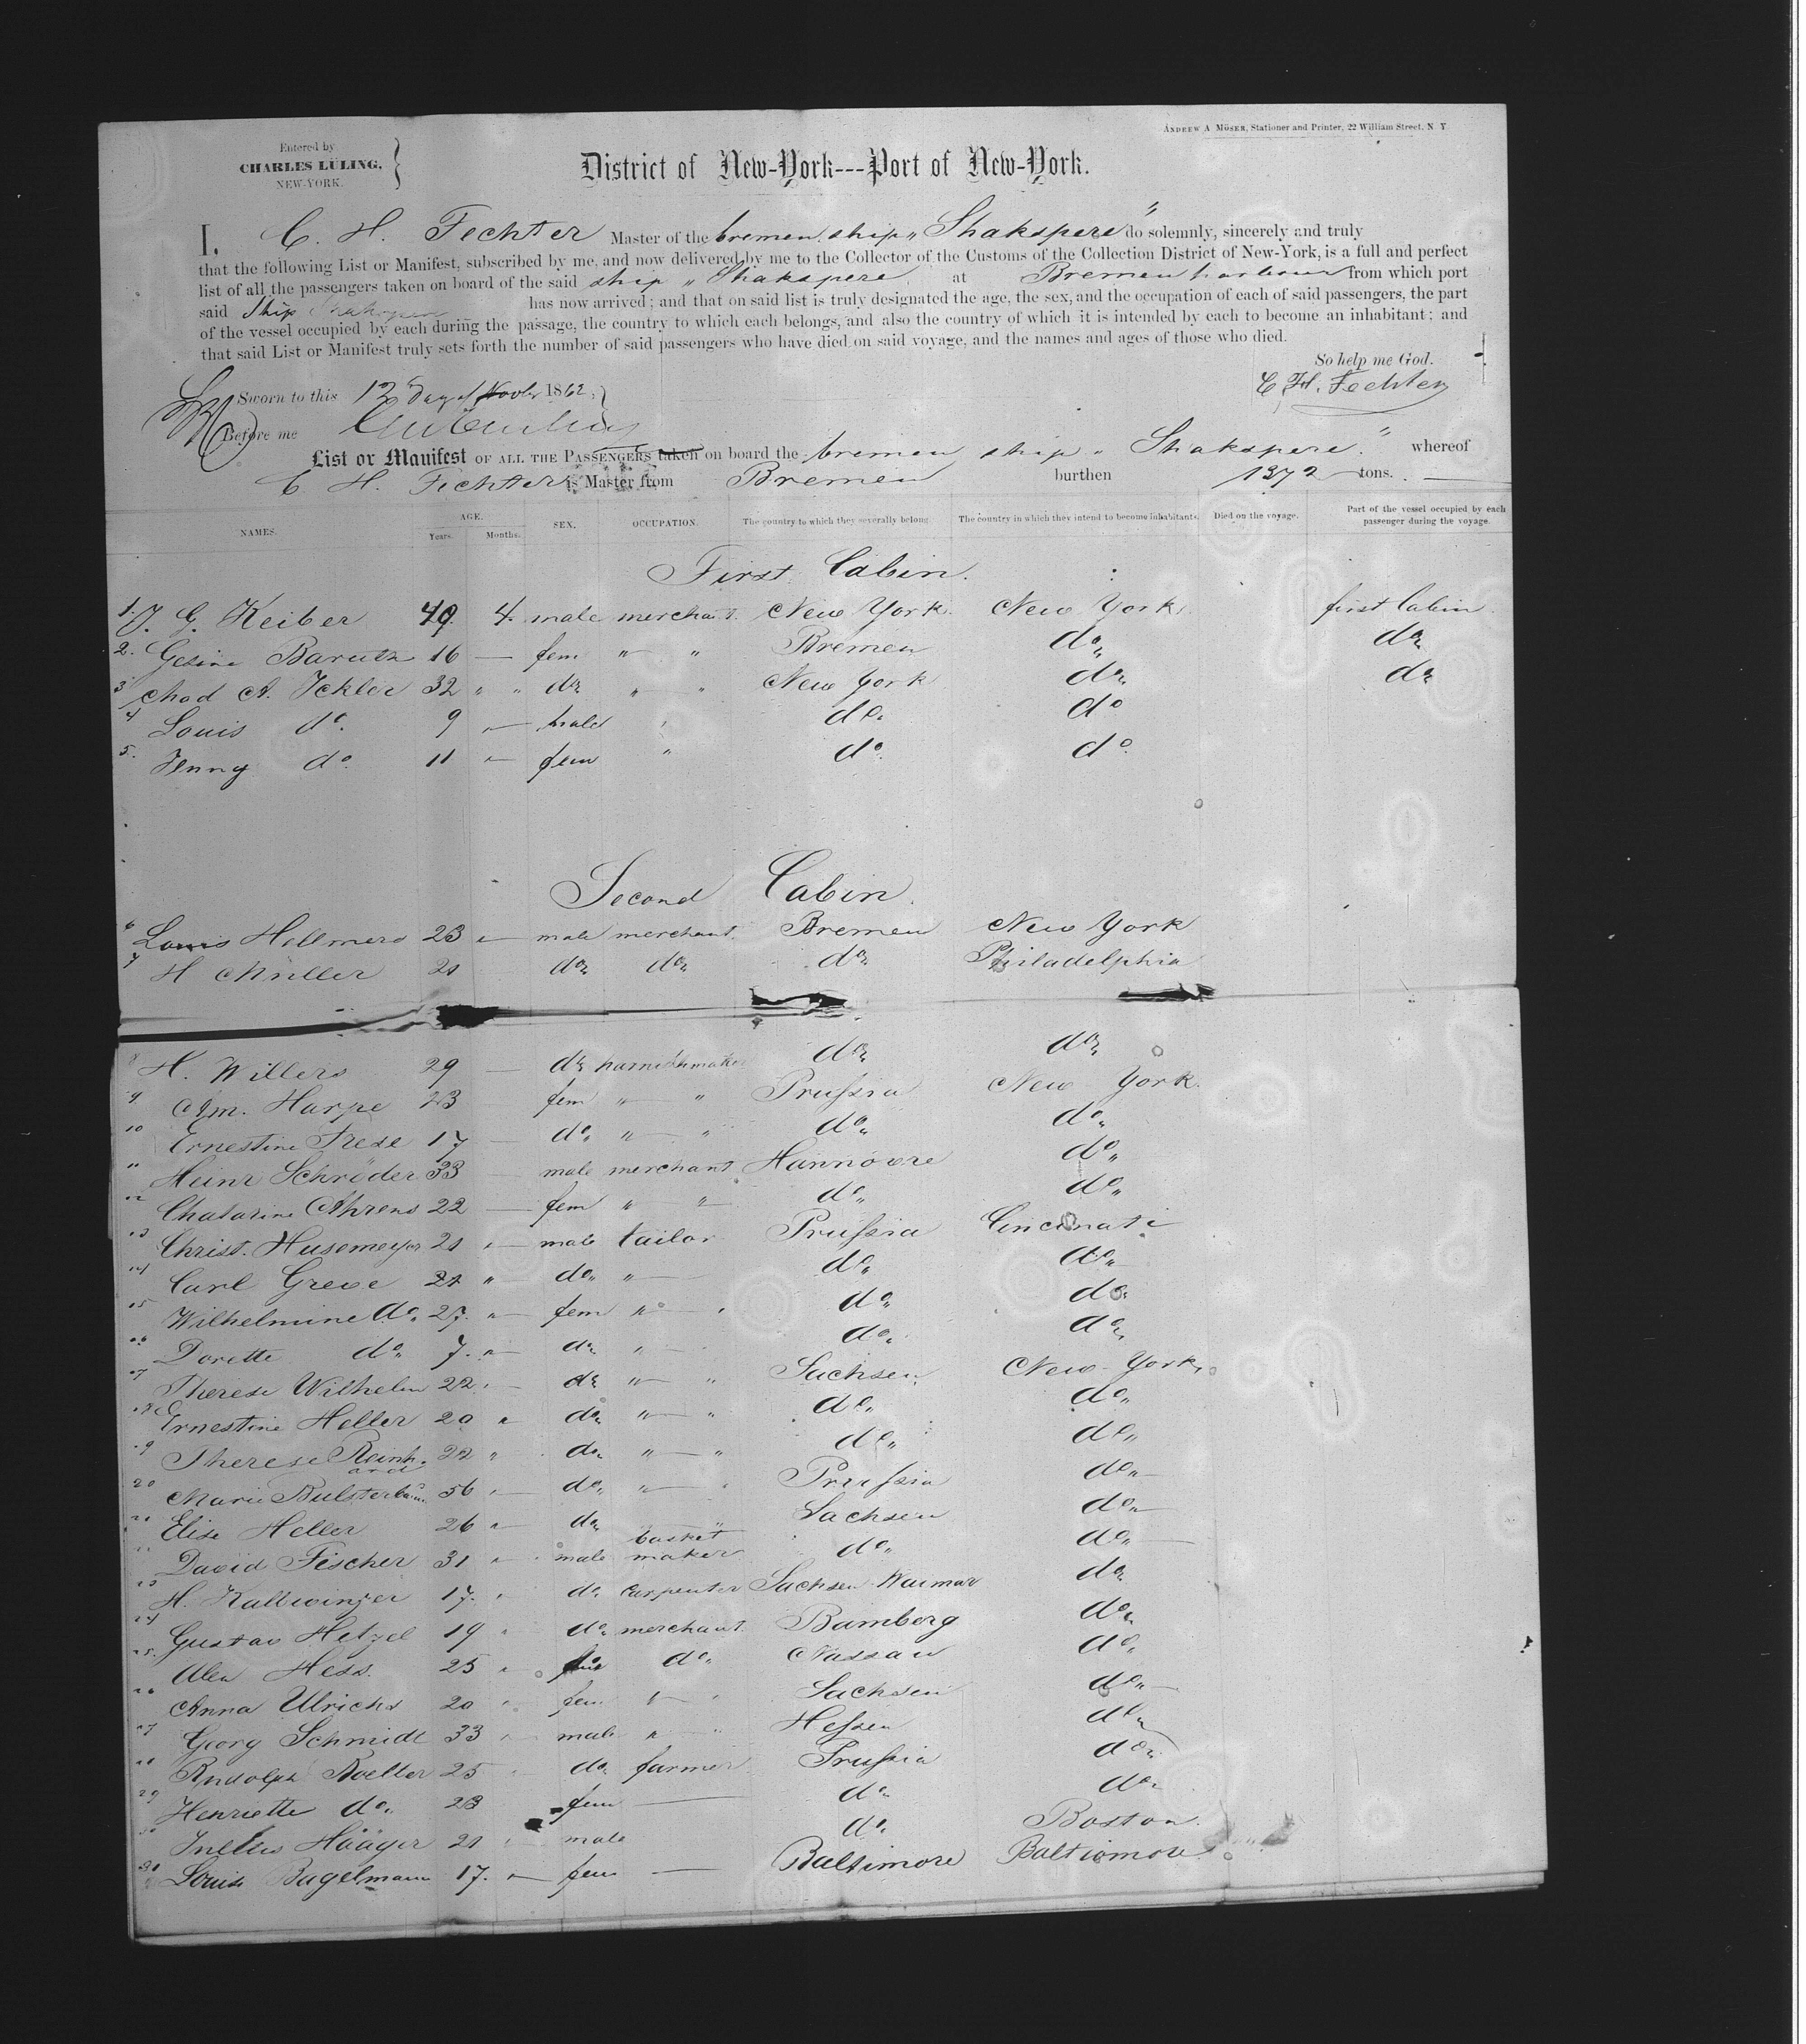 ANDREW A MÖSER, Stationer and Printer, 22 William Street, N Y
Entered by
CHARLES LÜLING,
NEW-YORK.
District of New-York---Port of New-York.
I. C. H. Fechter Master of the bremen ship „ Shakspere " do solemnly, sincerely and truly
that the following List or Manifest, subscribed by me, and now delivered by me to the Collector of the Customs of the Collection District of New-York, is a full and perfect
list of all the passengers taken on board of the said ship „ Shakspere at Bremen harbour from which port
said Ship Shakspere has now arrived; and that on said list is truly designated the age, the sex, and the occupation of each of said passengers, the part
of the vessel occupied by each during the passage, the country to which each belongs, and also the country of which it is intended by each to become an inhabitant; and
that said List or Manifest truly sets forth the number of said passengers who have died on said voyage, and the names and ages of those who died.
So help me God.
C. H. Fechter
Sworn to this 12 day of Novbr 1862.
Before me
List or Manifest OF ALL THE PASSENGERS taken on board the bremen ship „ Shakspere " whereof
C H. Fechter is Master from Bremen burthen 1372 tons.
NAMES. AGE. Years. Months. SEX. OCCUPATION. The country to which they severally belong. The country in which they intend to become inhabitants. Died on the voyage. Part of the vessel occupied by each passenger during the voyage.
First Cabin.
1. J. G. Keiber 49. 4. male merchant. New York. New York. first Cabin.
2. Gesine Baruth 16 — fem " " Bremen do. do.
3 Mad A. Ickler 32 " " do. " " New York do. do.
4 Louis do. 9 " — male " do. do
5. Jenny do. 11 " fem " do. do.
Second Cabin.
6 Louis Hellmers 23 " — male merchant. Bremen New York
7 H Müller 21 do. do. do. Philadelphia
8 H. Willers 29 — do. do. do.
9. Am. Harpe 23 fem " — " Prussia New York.
10 Ernestine Frese 17 — do. " — " do. do.
11 Heinr Schröder 33 male merchant Hannovre do.
12 Chatarine Ahrens 22 — fem " " do. do.
13 Christ. Husemeyer 21 " — male tailor Prussia Cincinati
14 Carl Greve 21 " do. " — do. do.
15 Wilhelmine do. 27. " — fem " — " do. do.
16 Dorette do. 7. " — do. " — do. do.
17 Therese Wilhelm 22 " — do. " — " Sachsen New-York.
18 Ernestine Heller 20 " do. " — " do. do.
19 Therese Reinhard 22 " do. " — " do. do.
20 Marie 56 " — do. " — " Prussia do. —
21 Elise Heller 26 " — do. " Sachsen do. —
22 David Fischer 31 " — male basket maker do. do. —
23 H. Kallwinzer 17. " do. carpenter Sachsen Waimar do.
24 Gustav Hetzel 19 " do. merchant. Bamberg do.
25. Alex Hess. 25 " do. Nassau do.
26 Anna Ulrichs 20 " fem " — " Sachsen do. —
27 Georg Schmidt 33 " male " — " Hessen do.
28 Rudolph Roelter 25 " do. farmer Prussia do.
29 Henriette do. 23 fem — do. do.
30 Julius Hääger 21 " male do. Boston.
31 Louise Bagelmann 17. " — fem — Baltimore Baltiomore